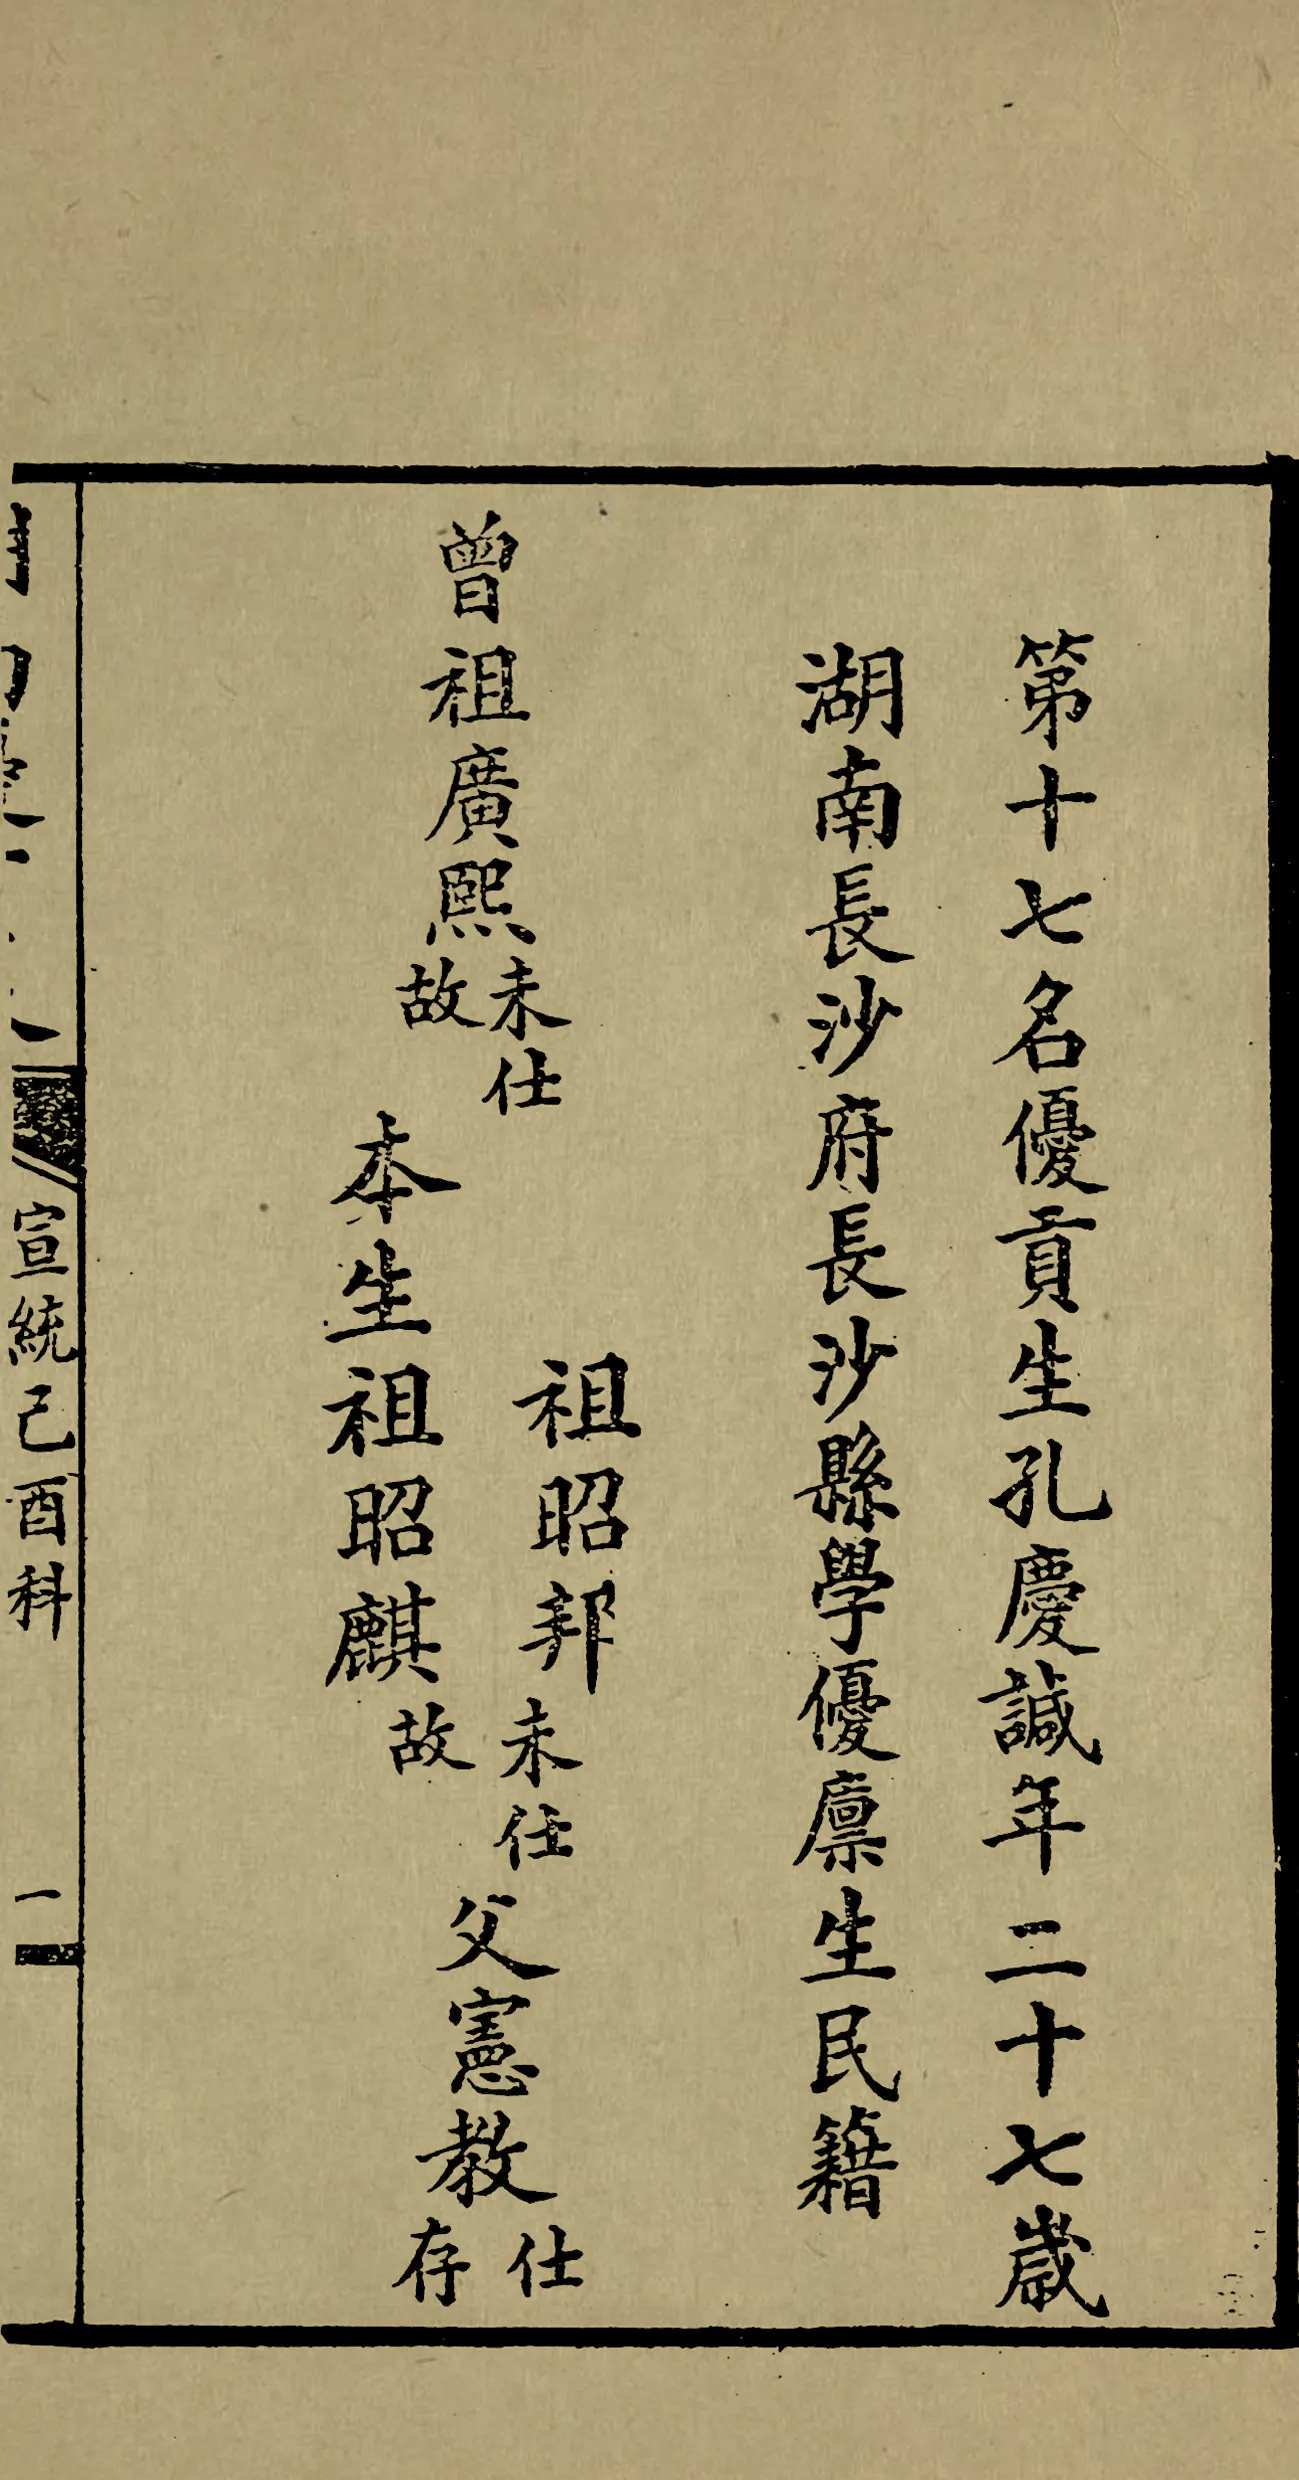 第十七名優貢生孔慶諴年二十七歲
湖南長沙府長沙縣學優廩生民籍
曾祖廣熙未仕故
祖昭邦未仕
本生祖昭麒故
父憲教仕存
宣統己酉科
一